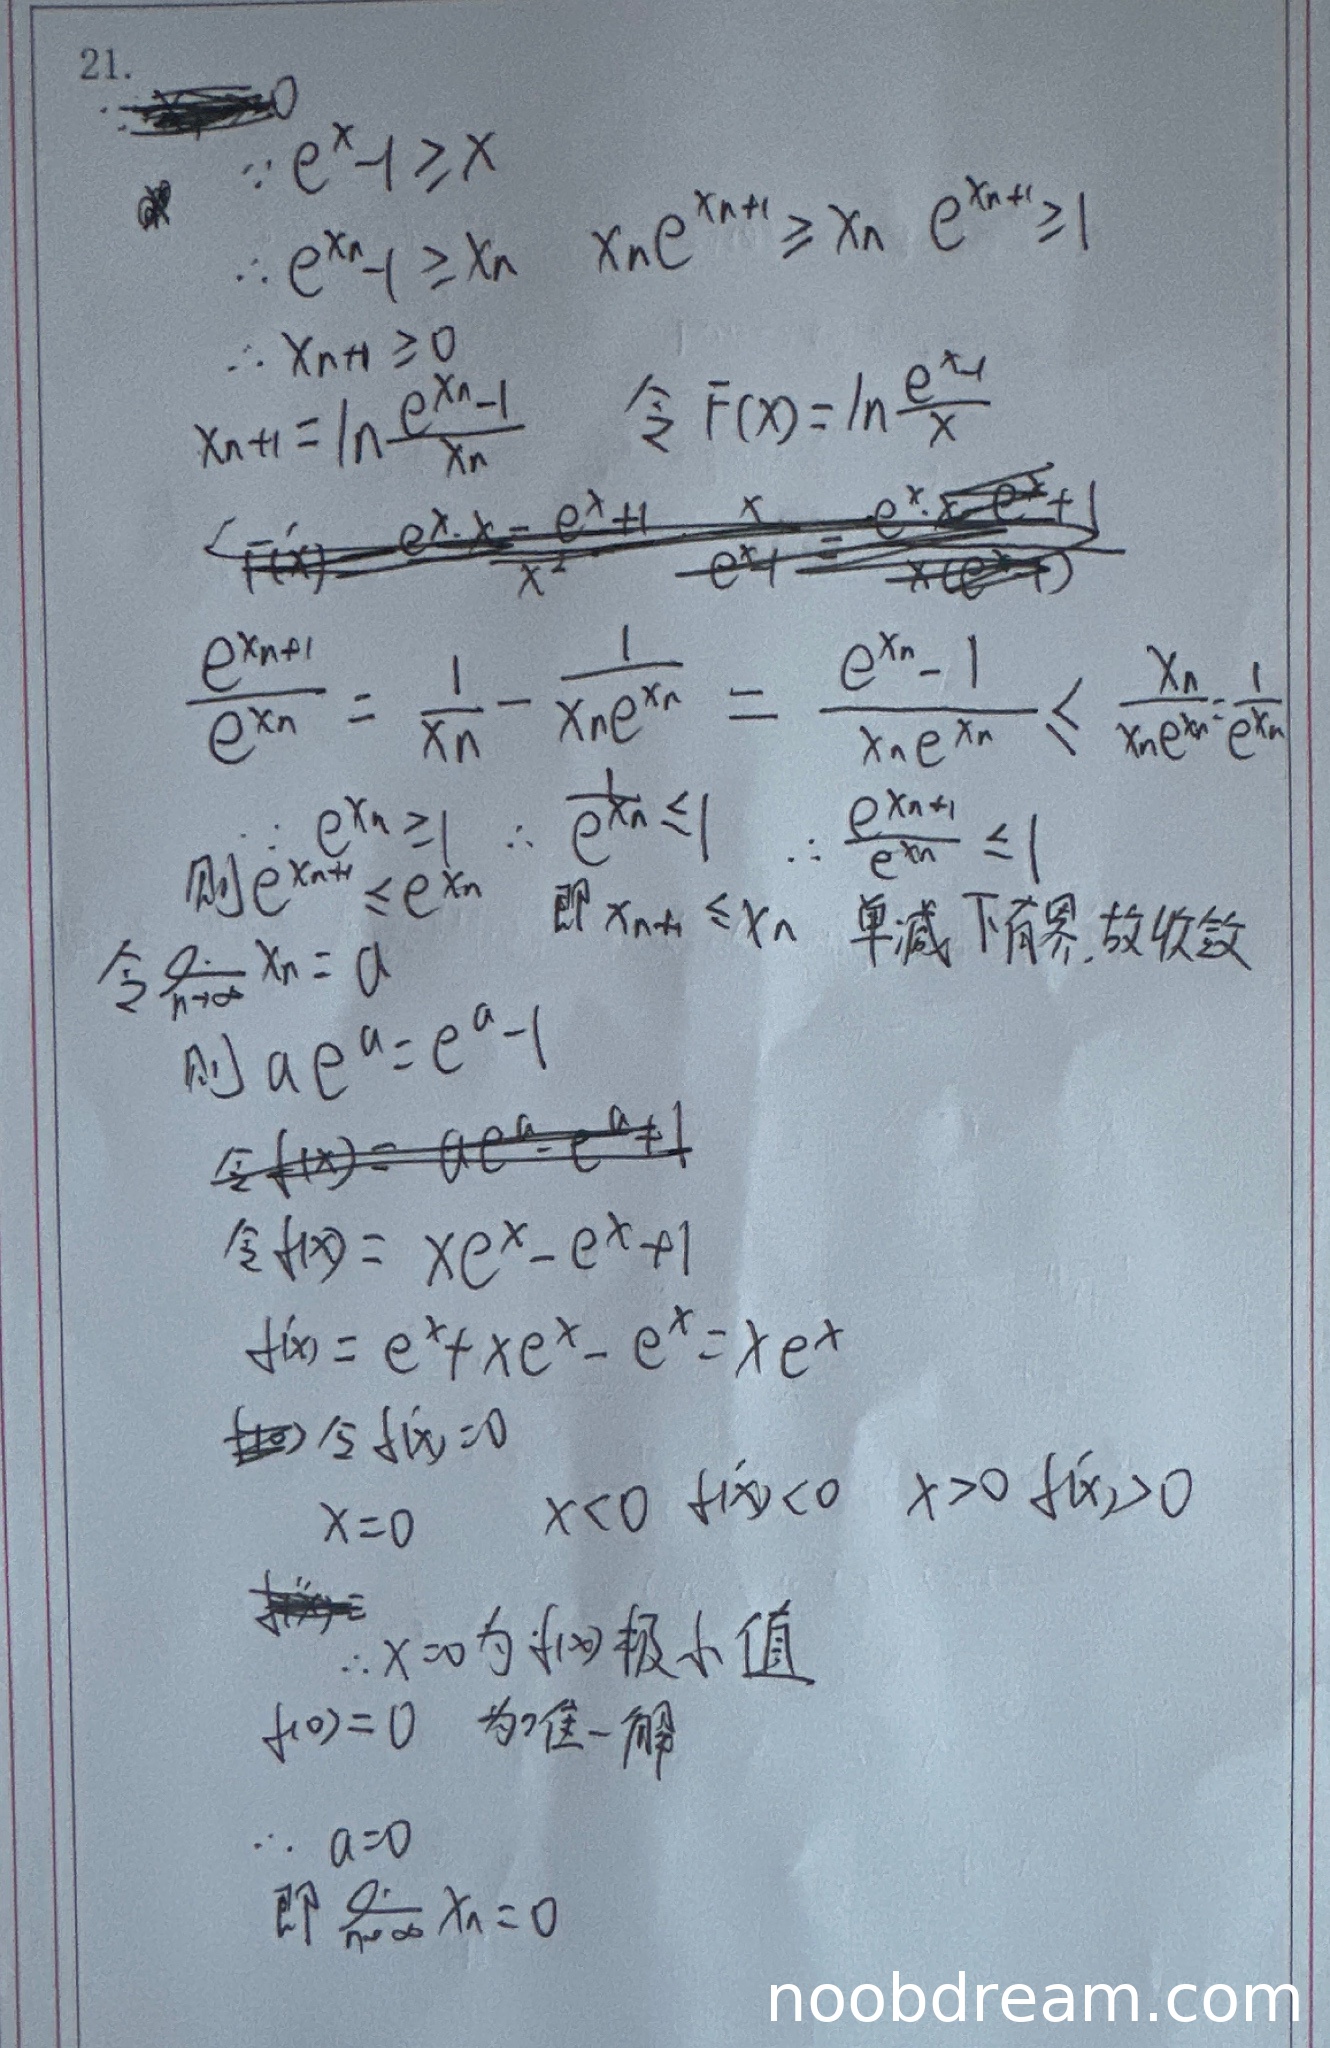 21.
0
∵ e^x - 1 ≥ x
∴ e^{x_n} - 1 ≥ x_n   x_n e^{x_{n+1}} ≥ x_n   e^{x_{n+1}} ≥ 1
∴ x_{n+1} ≥ 0
x_{n+1} = ln (e^{x_n} - 1)/x_n   令 F(x) = ln (e^x - 1)/x
F'(x) e^x·x - e^x + 1 / x^2   x / e^x - 1 = e^x·x - e^x + 1 / x(e^x - 1)
e^{x_{n+1}}/e^{x_n} = 1/x_n - 1/(x_n e^{x_n}) = (e^{x_n} - 1)/(x_n e^{x_n}) ≤ x_n/(x_n e^{x_n}) = 1/e^{x_n}
∵ e^{x_n} ≥ 1   ∴ 1/e^{x_n} ≤ 1   ∴ e^{x_{n+1}}/e^{x_n} ≤ 1
则 e^{x_{n+1}} ≤ e^{x_n}   即 x_{n+1} ≤ x_n   单减 下有界,故收敛
令 lim_{n→∞} x_n = a
则 a e^a = e^a - 1
令 f(x) = a e^a - e^a + 1
令 f(x) = x e^x - e^x + 1
f'(x) = e^x + x e^x - e^x = x e^x
令 f'(x) = 0
x = 0   x < 0 f'(x) < 0   x > 0 f'(x) > 0
f''(x) =
∴ x = 0 为 f(x) 极小值
f(0) = 0   为唯一解
∴ a = 0
即 lim_{n→∞} x_n = 0
noobdream.com